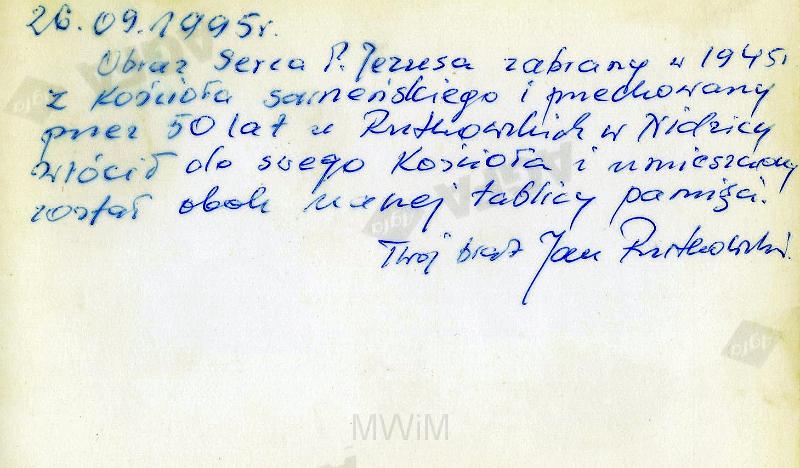 26.09.1995r.
Obraz Serca P. Jezusa zabrany w 1945r
z Kościoła sarneńskiego i przechowany
przez 50 lat u Rutkowskich w Nidzicy
wrócił do swego Kościoła i umieszczony
został obok naszej tablicy pamięci.
Twój brat Jan Rutkowski.
agfa
AGFA
agfa
agfa
MWiM